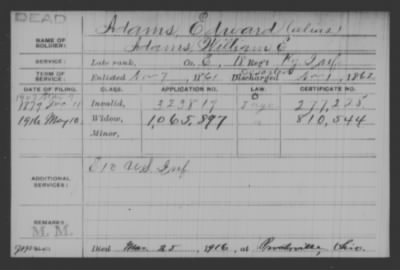 DEAD
NAME OF SOLDIER: Adams, Edward (alias)
Adams, William E
SERVICE: Late rank, Co. C, 18 Reg't Ky Inf
TERM OF SERVICE: Enlisted Nov 7, 1861 Discharged Nov 1, 1862
DATE OF FILING. CLASS. APPLICATION NO. LAW. CERTIFICATE NO.
1877 Invalid, 277,225
1916 May 10. Widow, 1,065,897 810,544
Minor,
ADDITIONAL SERVICES: U.S. Inf
REMARKS: M. M.
Died Mar 25, 1916, at Ohio